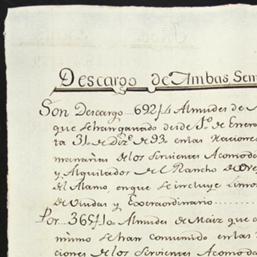 Descargo de Ambas Sem
Son Descargo 692 1/4 Almudes de
que se han ganado desde 1.º de Enero
ta 31 de Diz.e de 93 en las Raciones
menarias de los Sirvientes Acomoda
y Alquilados de el Rancho de
el Alamo, en que se incluye Limos
de Viudas y Extraordinario
Por 365 1/2 Almudes de Maiz que
mismo se han Consumido en las
ciones de los Sirvientes Acomoda